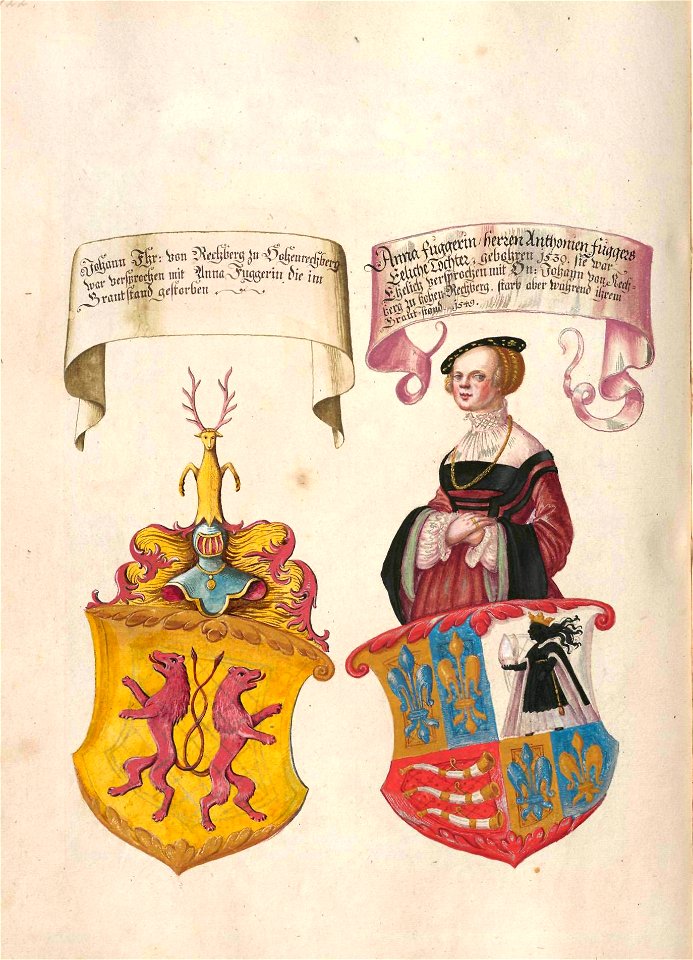 122.
Johann Fhr: von Rechberg zu Hohenrechberg
war versprochen mit Anna Fuggerin die im
Brautstand gestorben
Anna Fuggerin, herren Anthonien Fuggers
Eeliche Tochter, gebohren 1539. sie war
Ehelich versprochen mit Hn: Johann von Rech-
berg zu hohen Rechberg, starb aber während ihrem
Braut-stand. 1549.